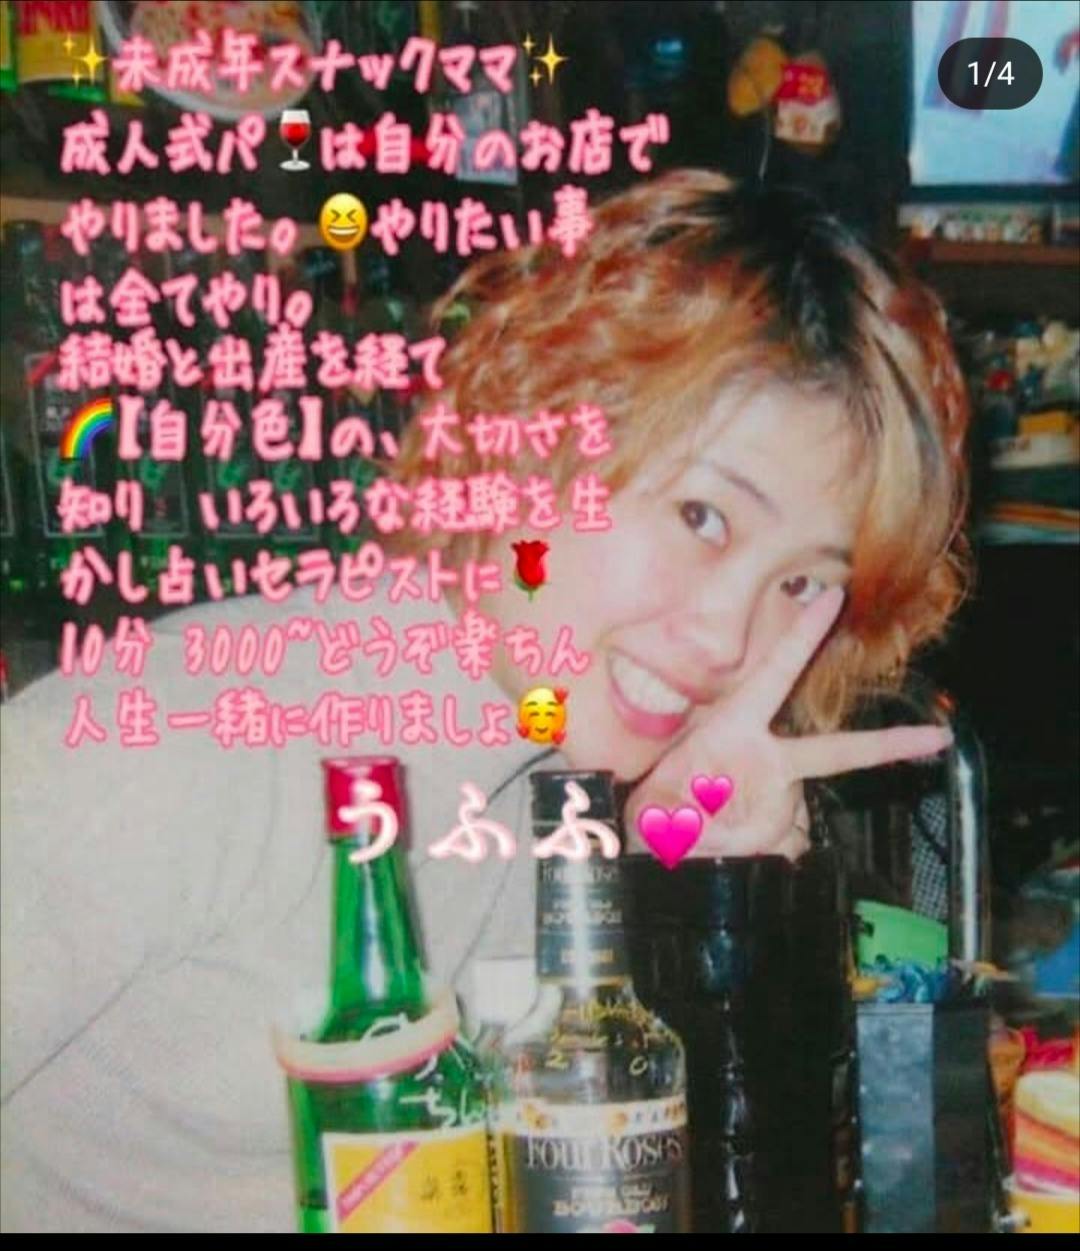 1/4
✨未成年スナックママ✨
成人式パ🍷は自分のお店で
やりました。😆やりたい事
は全てやり。
結婚と出産を経て
🌈【自分色】の、大切さを
知り　いろいろな経験を生
かし占いセラピストに🌹
10分 3000~どうぞ楽ちん
人生一緒に作りましょ🥰
うふふ💕
Four Roses
BOURBON